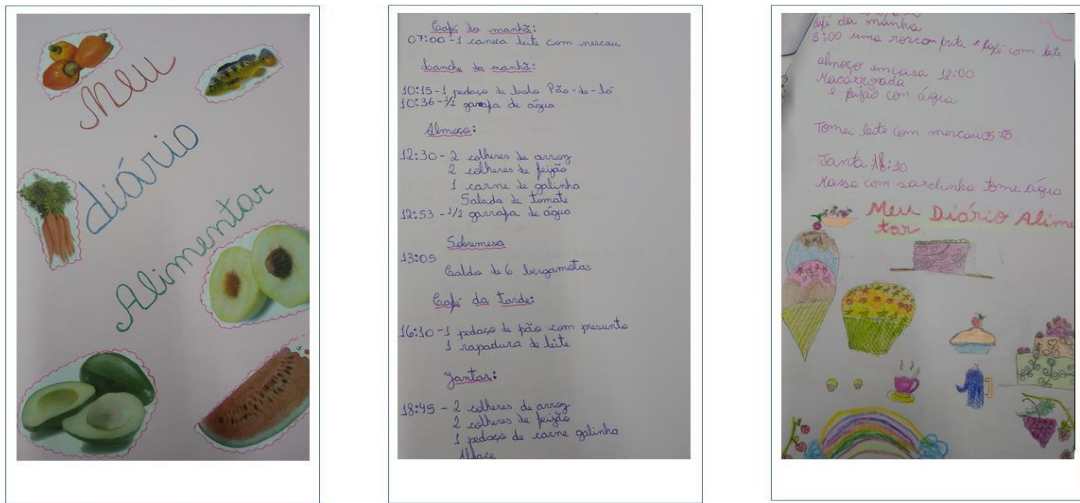 Meu
diário
Alimentar
Café da manhã:
07:00 - 1 caneca leite com nescau
Lanche da manhã:
10:15 - 1 pedaço de bolo Pão-de-ló
10:36 - 1/2 garrafa de água
Almoço:
12:30 - 2 colheres de arroz
2 colheres de feijão
1 carne de galinha
Salada de tomate
12:53 - 1/2 garrafa de água
Sobremesa
13:05
Caldo de 6 bergamotas
Café da tarde:
16:10 - 1 pedaço de pão com presunto
1 rapadura de leite
Jantar:
18:45 - 2 colheres de arroz
2 colheres de feijão
1 pedaço de carne galinha
Alface
café da manha
8:00 uma rosca frita e café com leite
almoço em casa 12:00
Macarronada
e feijão com água
Tomei leite com mercau
Janta 18:10
Massa com sardinha tome água
Meu Diário Alimen
tar